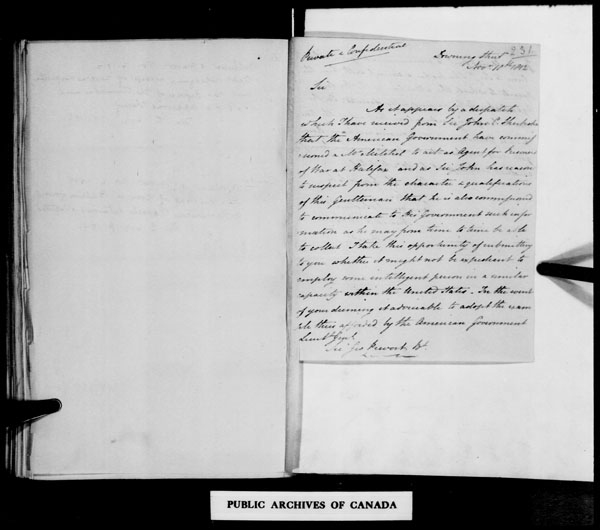 231
Private & Confidential
Downing Street
Novr. 10th 1812
Sir
As it appears by a despatch
which I have received from Sir John C. Sherbrooke
that the American Government have commis
sioned a Mr. Mitchel to act as Agent for Prisoners
of War at Halifax and as Sir John has reason
to suspect from the character & qualifications
of this Gentleman that he is also commissioned
to communicate to His Government such infor
mation as he may from time to time be able
to collect I take this opportunity of submitting
to you whether it might not be expedient to
employ some intelligent person in a similar
capacity within the United States. In the event
of your deeming it advisable to adopt the exam
ple thus afforded by the American Government
Lieutt. Genl.
Sir Geo Prevost Bt.
PUBLIC ARCHIVES OF CANADA